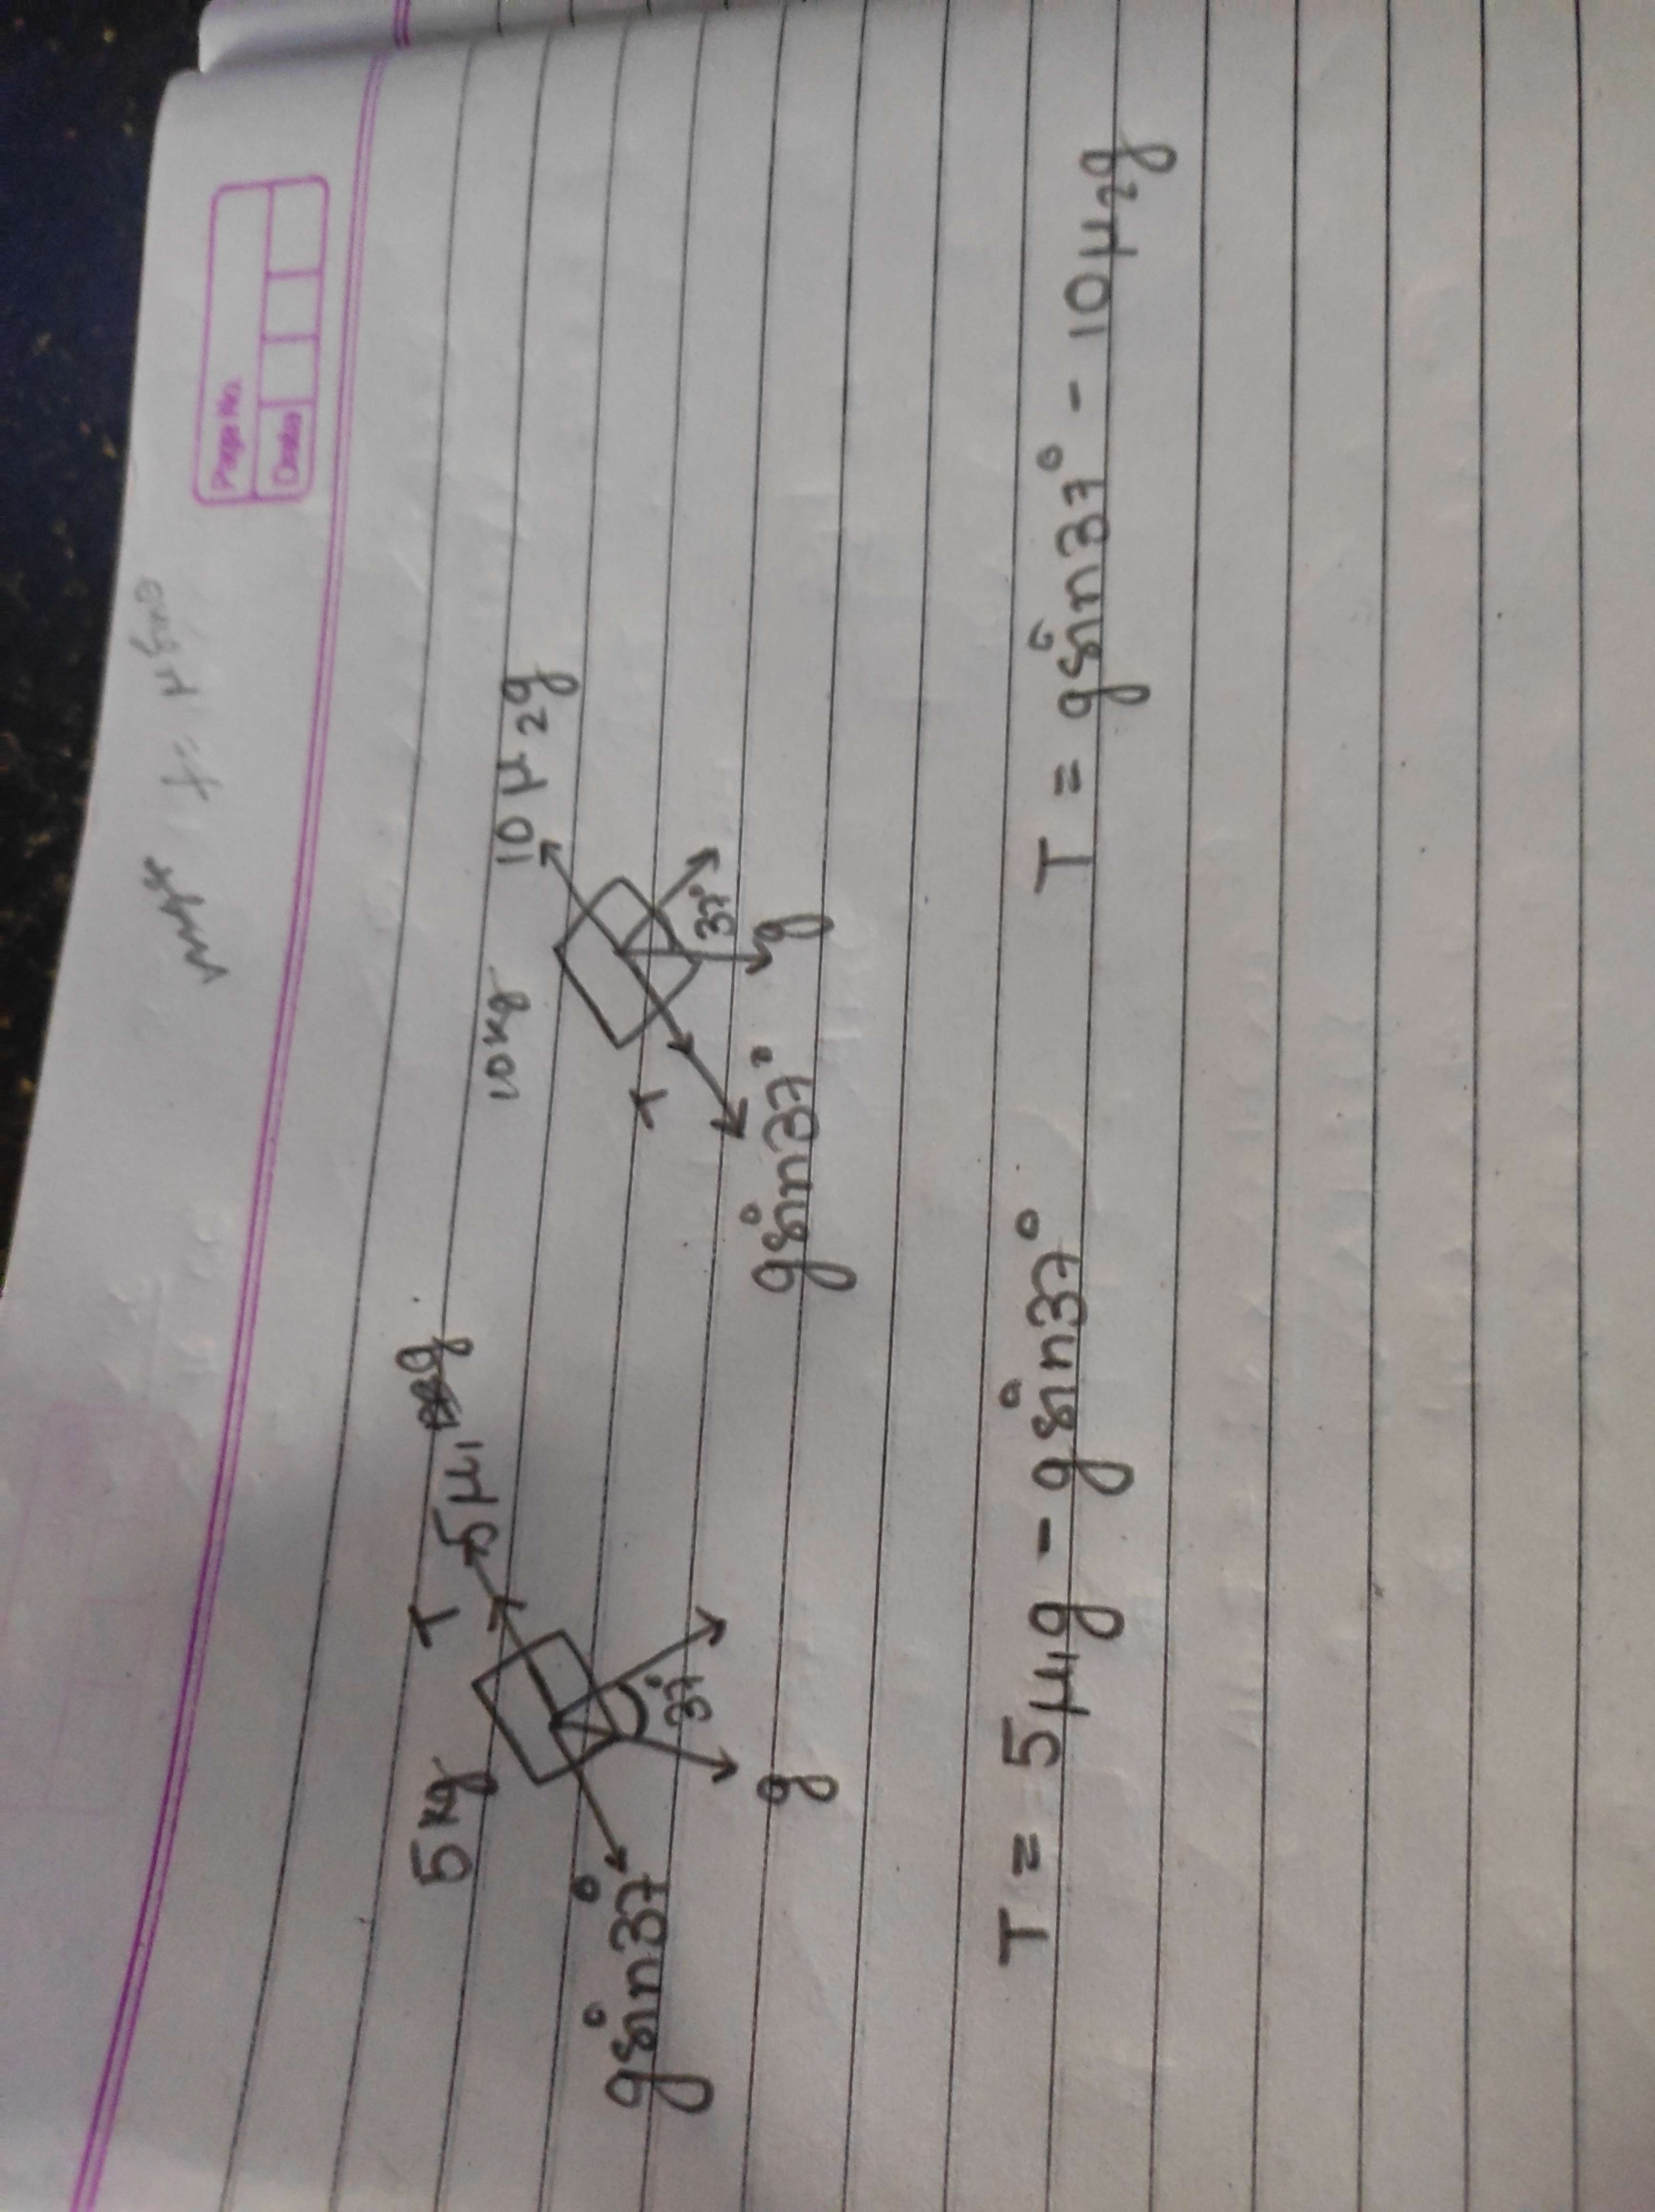 Page No.
Date
f = μ
5 kg
T
5μ₁
g sin37°
37°
g
10kg
10 μ₂g
T
37°
g
g sin37°
T = 5μ₁g - g sin37°
T = g sin37° - 10μ₂g